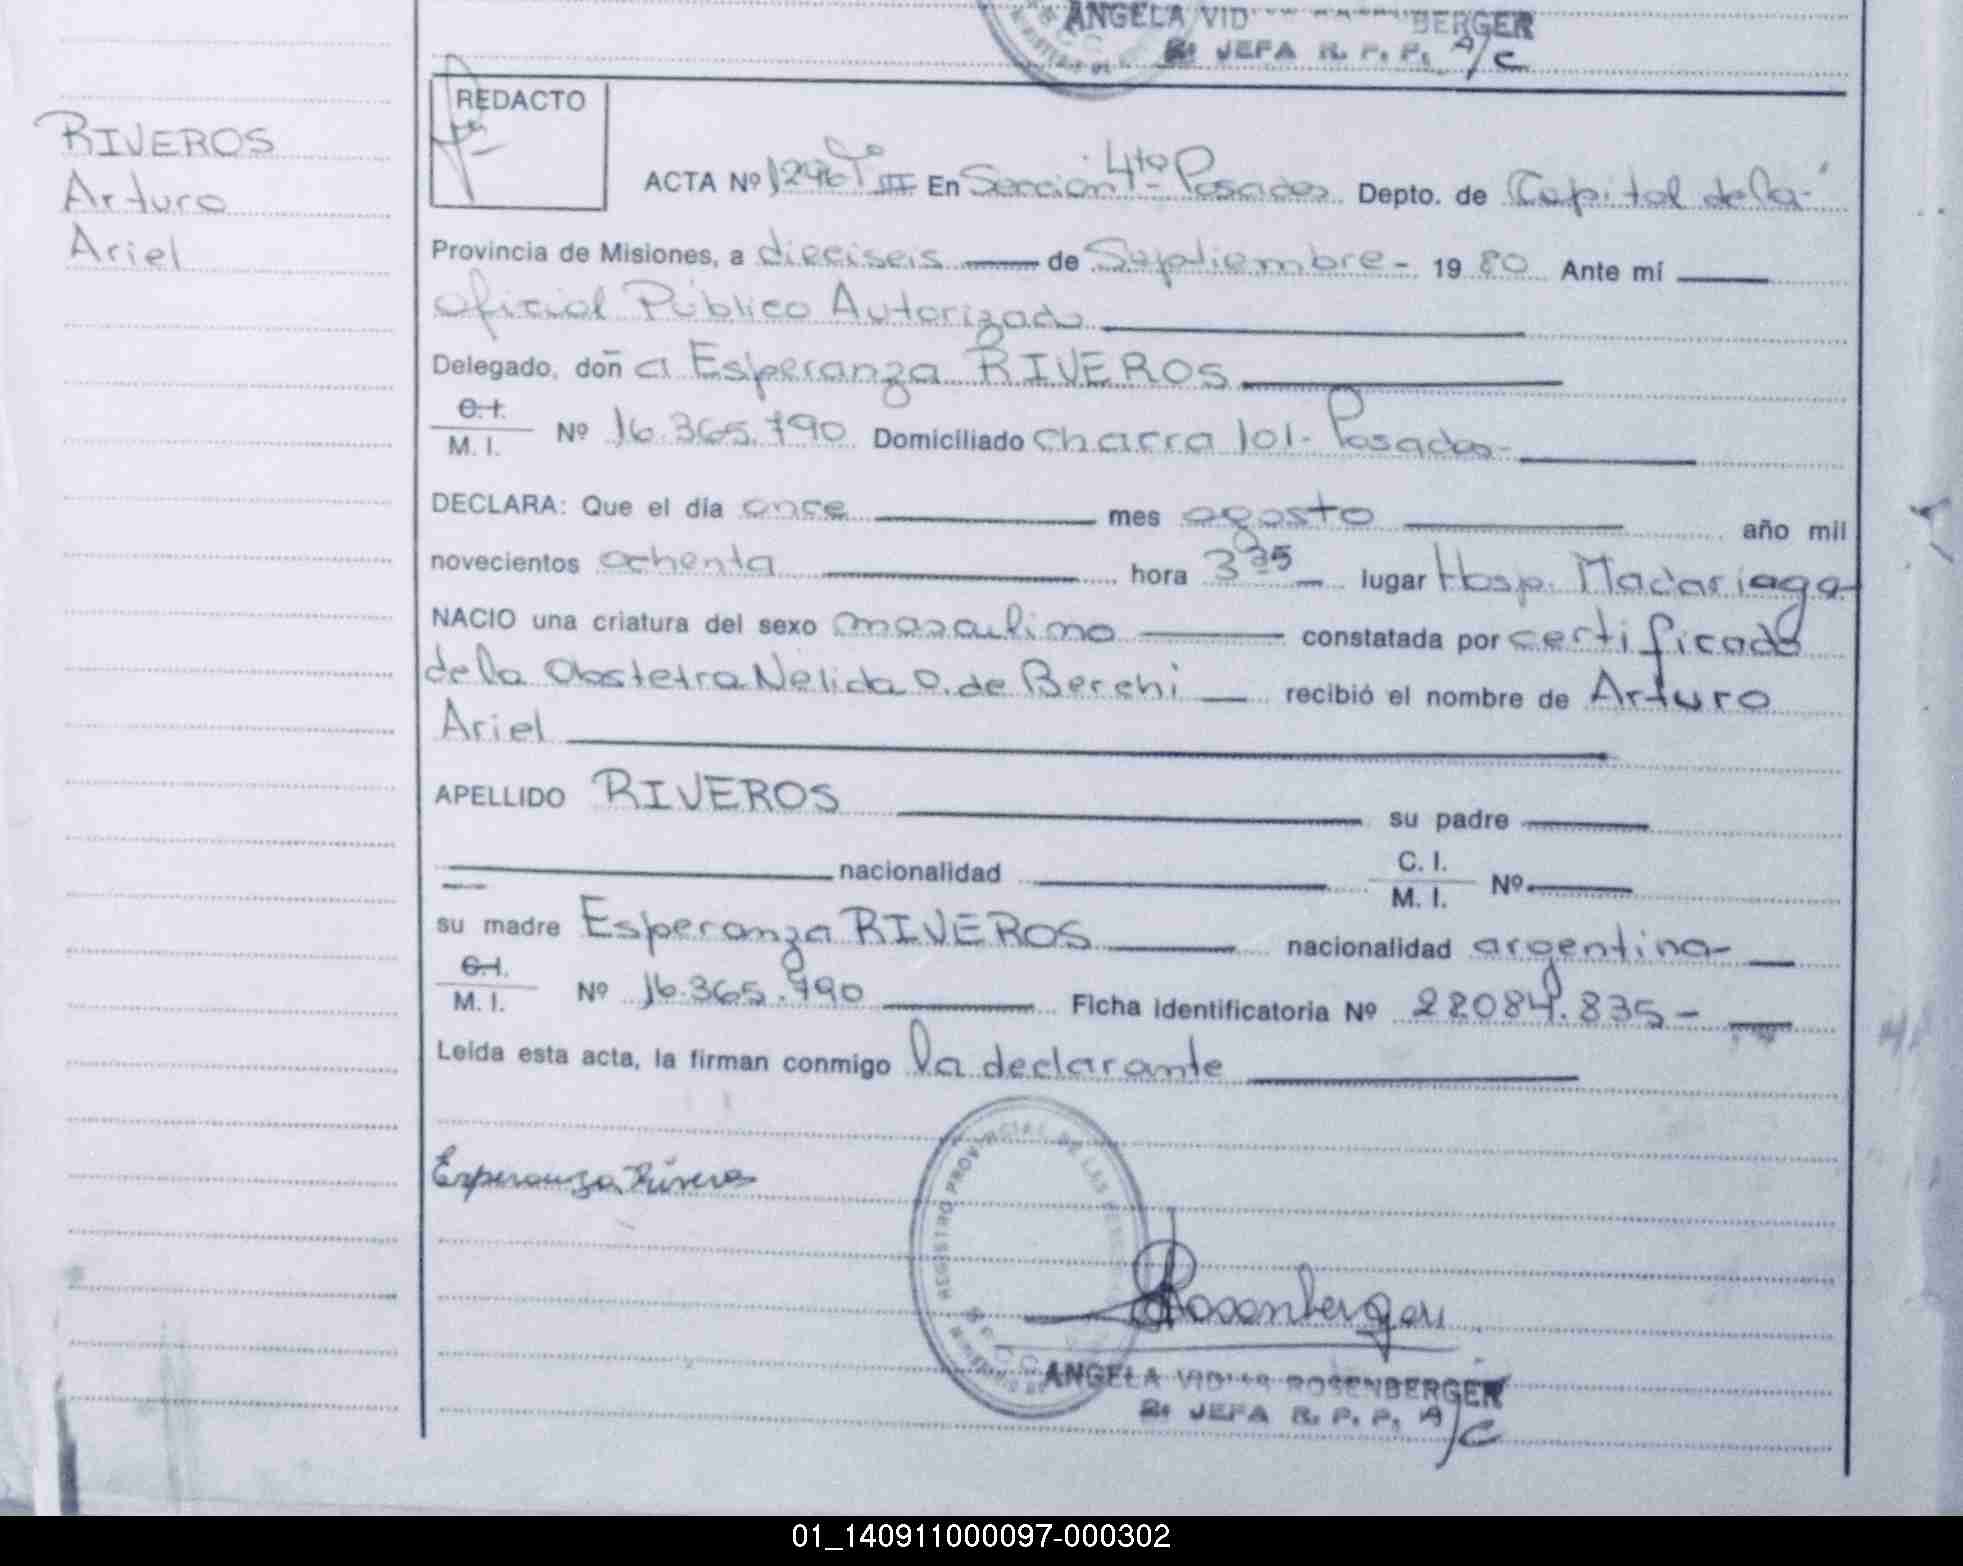 ANGELA VID BERGER
2ª JEFA R. P. P. A/C
REDACTO
RIVEROS
Arturo
Ariel
ACTA Nº 1246 Tº III En Sección 4ta Posadas Depto. de Capital de la
Provincia de Misiones, a dieciseis de Septiembre - 19 80 Ante mí
Oficial Público Autorizado
Delegado, doña Esperanza RIVEROS
C.I.
M. I. Nº 16.365.790 Domiciliado chacra 101- Posadas-
DECLARA: Que el día once mes agosto año mil
novecientos ochenta hora 3 35 lugar Hosp. Madariaga-
NACIO una criatura del sexo masculino constatada por certificado
de la Obstetra Nelida O. de Berchi recibió el nombre de Arturo
Ariel
APELLIDO RIVEROS su padre
nacionalidad C. I.
M. I. Nº
su madre Esperanza RIVEROS nacionalidad argentina-
C.I.
M. I. Nº 16.365.790 Ficha identificatoria Nº 22084.835-
Leída esta acta, la firman conmigo la declarante
Esperanza Riveros
REGISTRO PROVINCIAL DE LAS
Rosenberger
ANGELA VID ROSENBERGER
2ª JEFA R. P. P. A/C
01_140911000097-000302